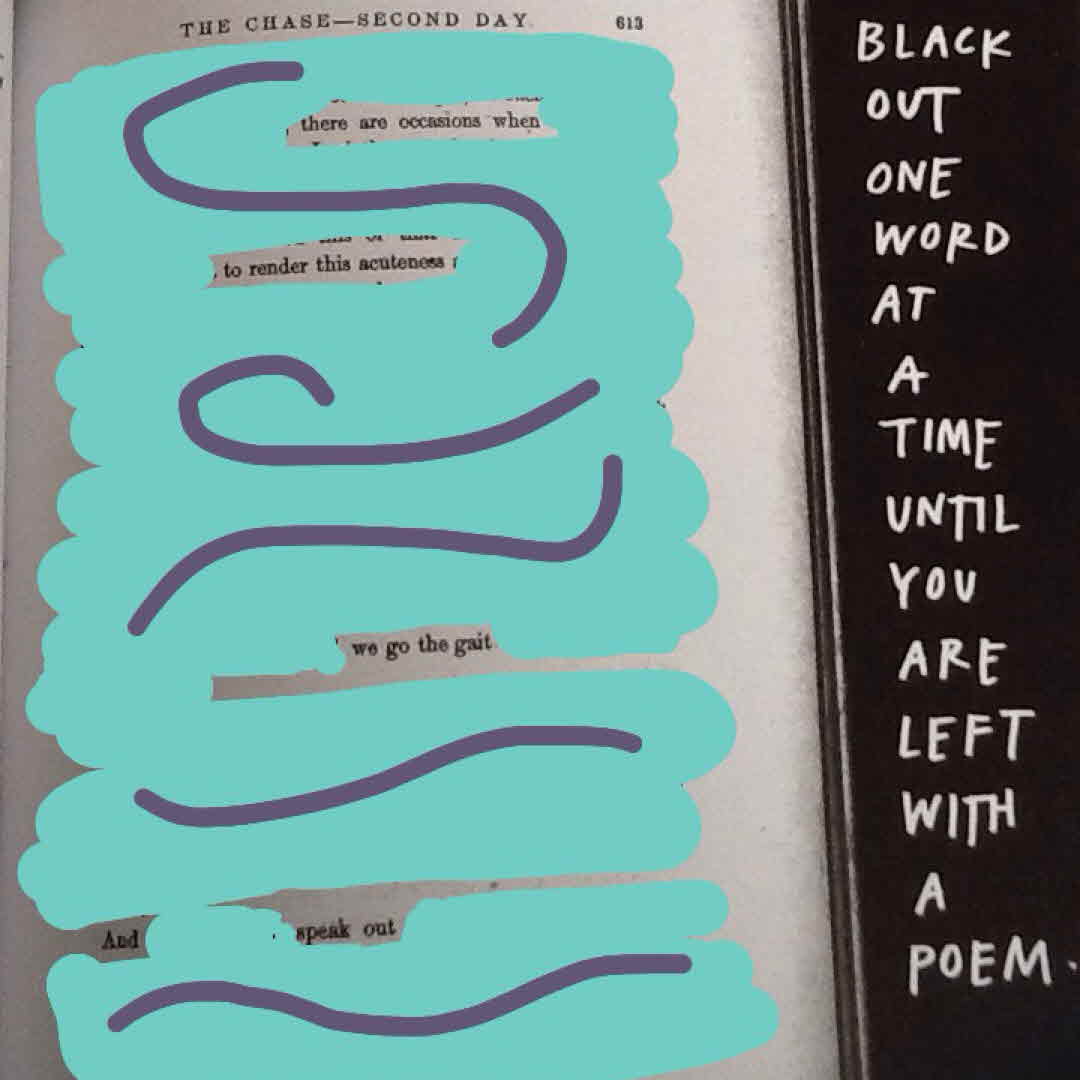 THE CHASE—SECOND DAY. 613
there are occasions when
to render this acuteness
we go the gait
And speak out
BLACK
OUT
ONE
WORD
AT
A
TIME
UNTIL
YOU
ARE
LEFT
WITH
A
POEM.